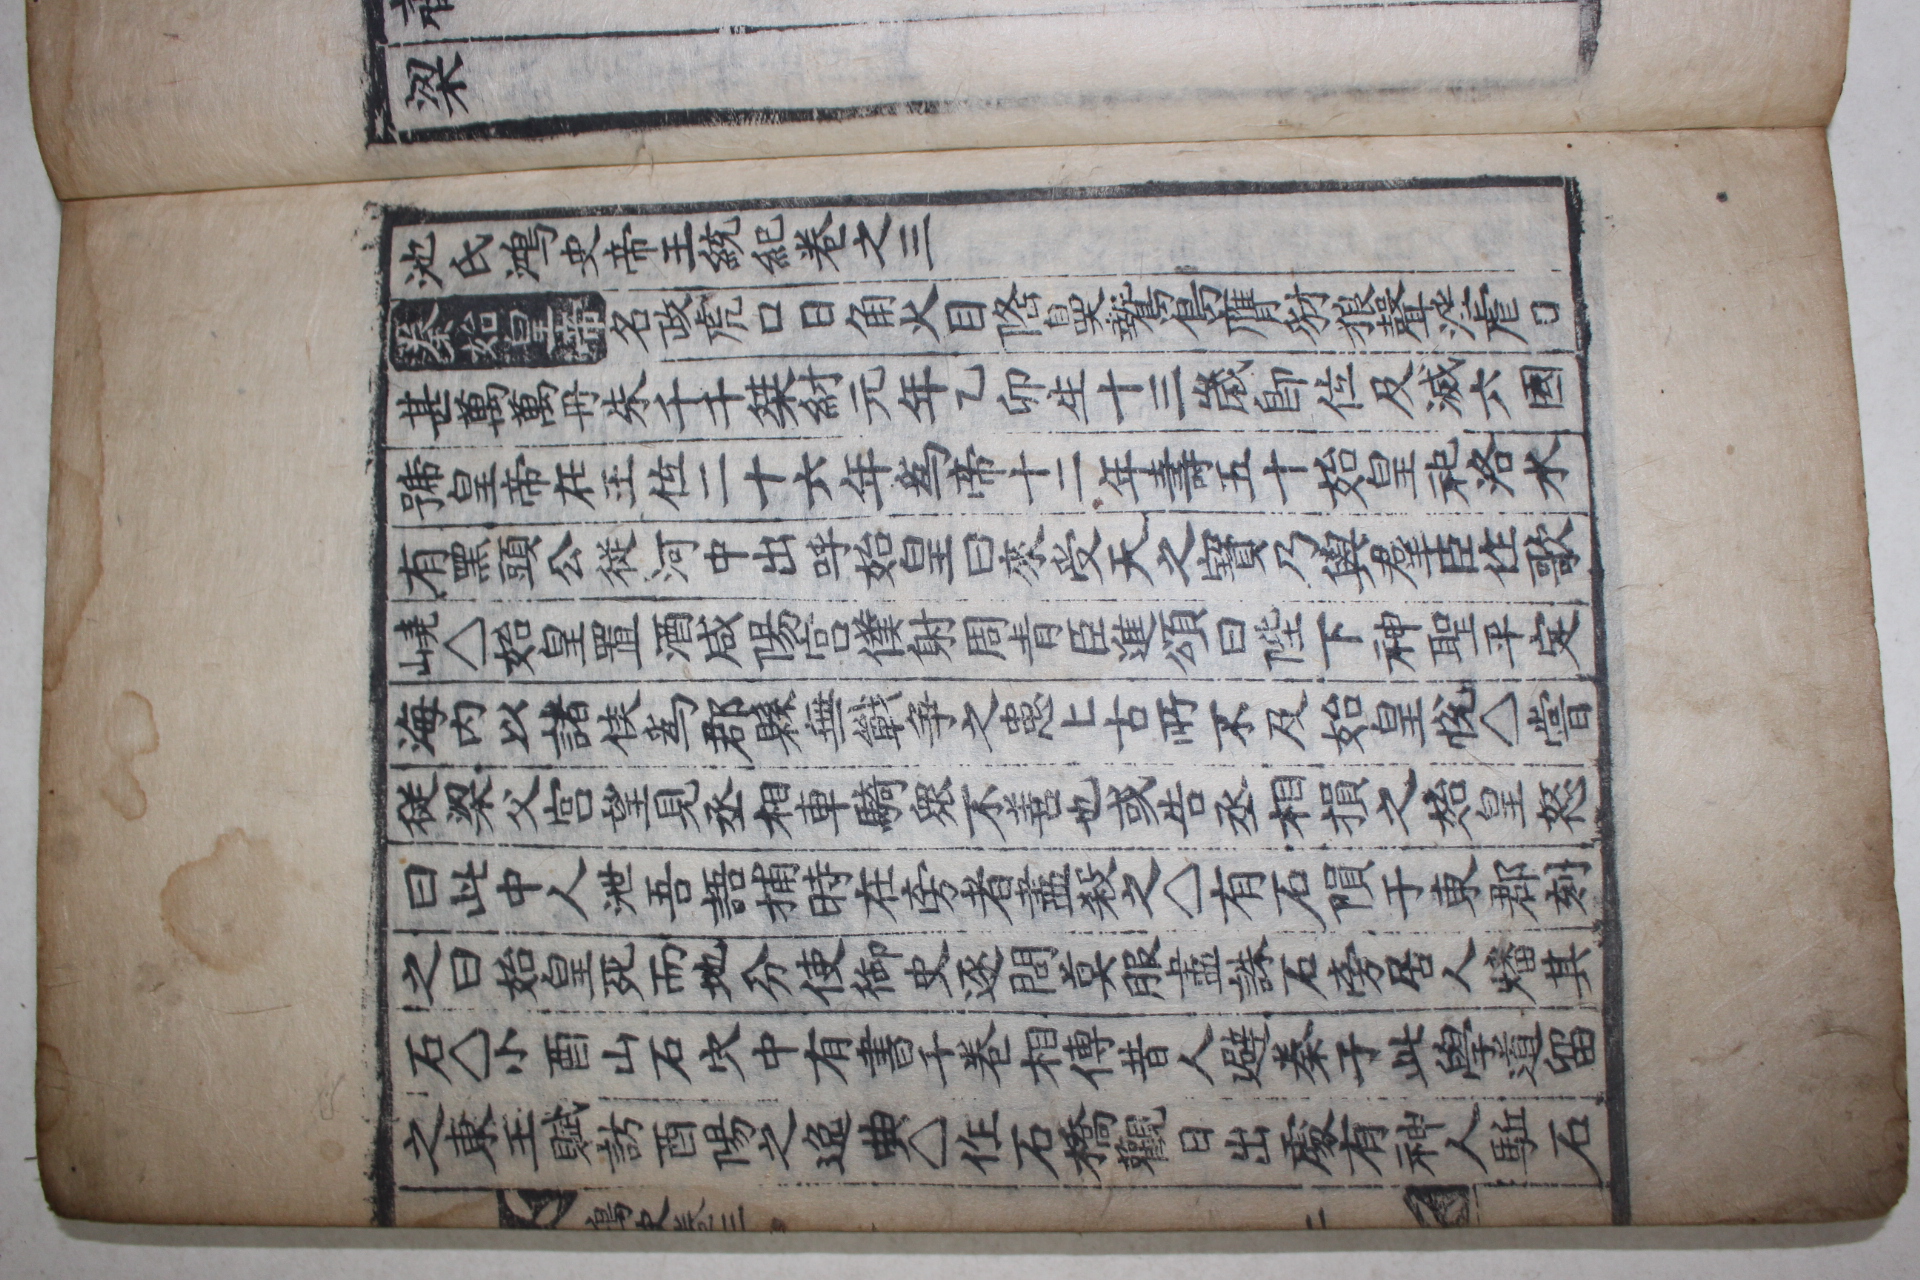 梁
池氏鴻史帝王統紀卷之三
秦始皇帝名政虎口日角火目隆鼻鷙鳥膺豺狼聲淫虐日
甚萬萬丹朱千千桀紂元年乙卯生十三歲卽位及滅六國
號皇帝在王位二十六年爲帝十二年壽五十始皇祀洛水
有黑頭公從河中出呼始皇曰來受天之寶乃與羣臣作歌
嶢△始皇置酒咸陽宮僕射周青臣進頌曰陛下神聖平定
海内以諸侯爲郡縣無戰爭之患上古所不及始皇悅△嘗
從梁父宮望見丞相車騎衆不善也或告丞相損之始皇怒
曰此中人泄吾語捕時在旁者盡殺之△有石隕于東郡刻
之曰始皇死而地分使御史逐問莫服盡誅石旁居人燔其
石△小酉山石穴中有書千卷相傳昔人避秦于此學道留
之東王賦訪酉陽之逸典△作石橋觀日出處有神人駈石
鴻史卷三